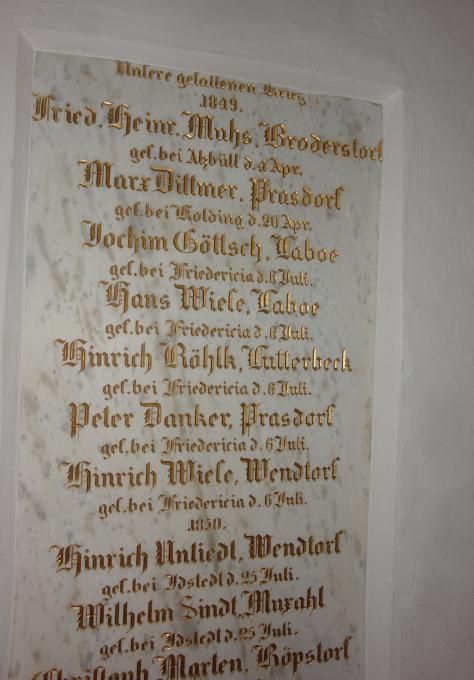 Unsere gefallenen Krieg
1849.
Fried. Heinr. Muhs, Broderstorf
gef. bei Atzbüll d. 4 Apr.
Marx Dittmer, Prasdorf
gef. bei Kolding d. 20 Apr.
Jochim Göttsch, Laboe
gef. bei Friedericia d. 6 Juli.
Hans Wiese, Laboe
gef. bei Friedericia d. 6 Juli.
Hinrich Röhlk, Lutterbeck
gef. bei Friedericia d. 6 Juli.
Peter Danker, Prasdorf
gef. bei Friedericia d. 6 Juli.
Hinrich Wiese, Wendtorf
gef. bei Friedericia d. 6 Juli.
1850.
Hinrich Untiedt, Wendtorf
gef. bei Idstedt d. 25 Juli.
Wilhelm Sindt, Muxahl
gef. bei Idstedt d. 25 Juli.
Christoph Marten, Röpstorf